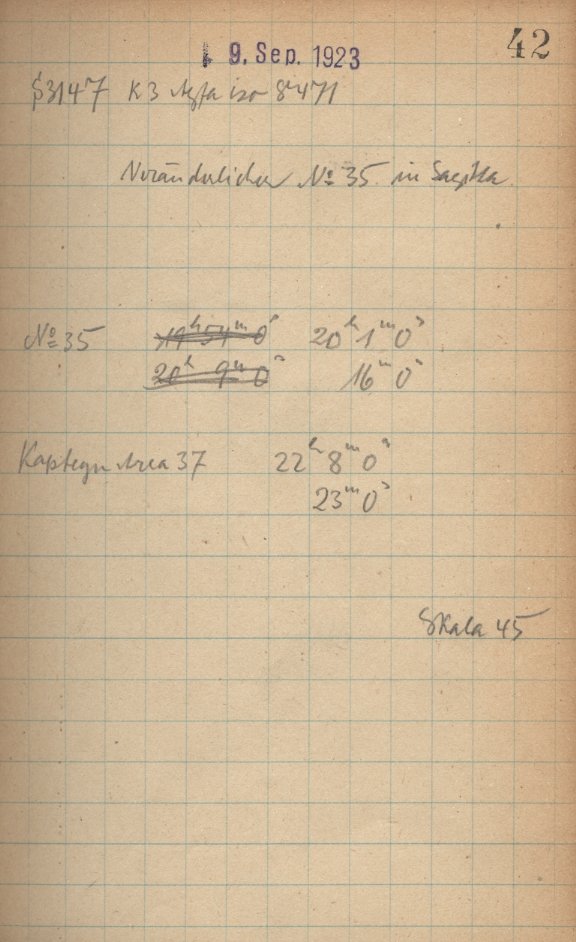 42
9. Sep. 1923
S3147 K3 Agfa iso 8471
Veränderlicher No 35 in Sagitta
No 35 19h 54m 0s 20h 1m 0s
20h 9m 0s 16m 0s
Kapteyn Area 37 22h 8m 0s
23m 0s
Skala 45